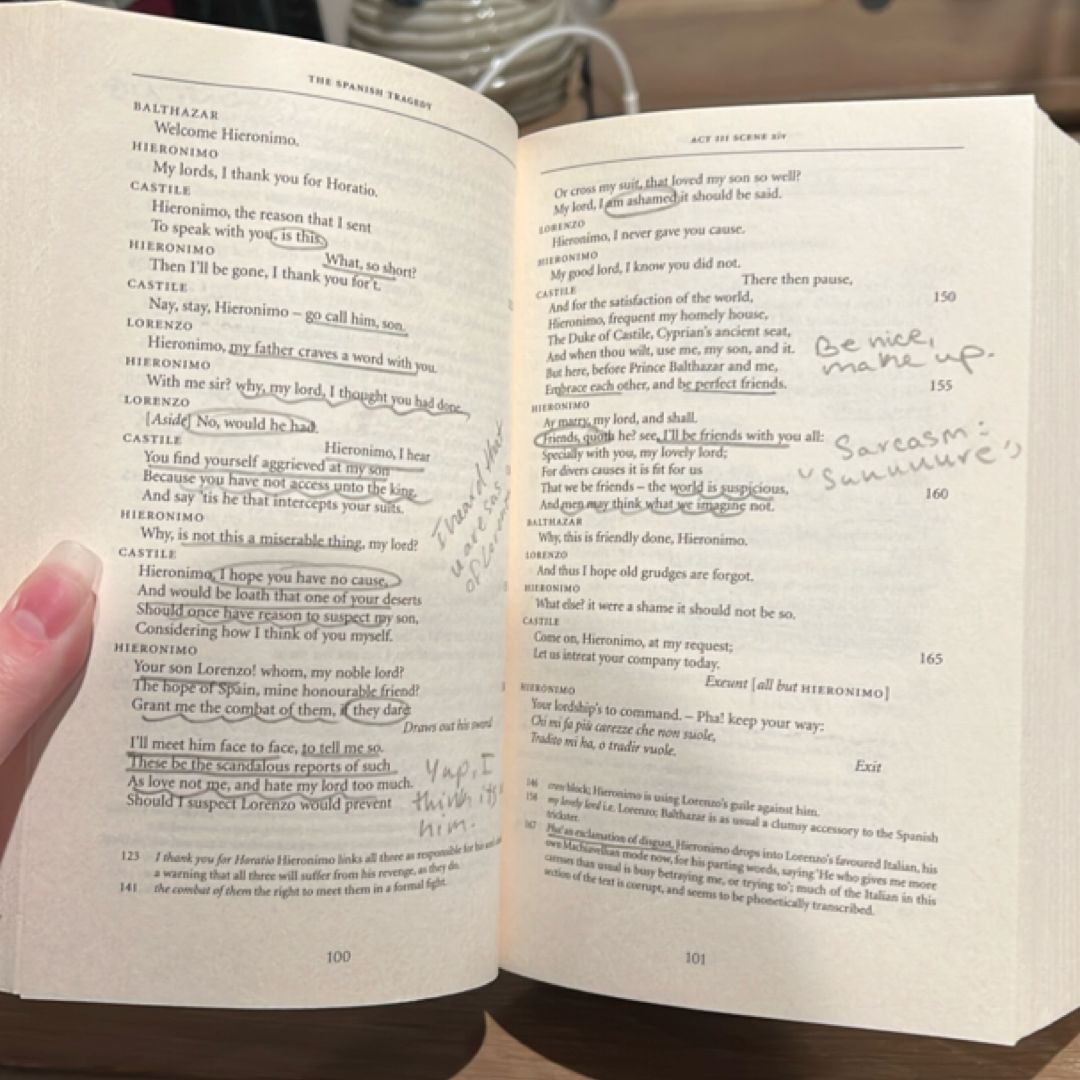 THE SPANISH TRAGEDY
BALTHAZAR
Welcome Hieronimo.
HIERONIMO
My lords, I thank you for Horatio.
CASTILE
Hieronimo, the reason that I sent
To speak with you, is this.
HIERONIMO
What, so short?
Then I'll be gone, I thank you for't.
CASTILE
Nay, stay, Hieronimo – go call him, son.
LORENZO
Hieronimo, my father craves a word with you.
HIERONIMO
With me sir? why, my lord, I thought you had done.
LORENZO
[Aside] No, would he had.
CASTILE
Hieronimo, I hear
You find yourself aggrieved at my son
Because you have not access unto the king,
And say 'tis he that intercepts your suits.
HIERONIMO
Why, is not this a miserable thing, my lord?
CASTILE
Hieronimo, I hope you have no cause,
And would be loath that one of your deserts
Should once have reason to suspect my son,
Considering how I think of you myself.
HIERONIMO
Your son Lorenzo! whom, my noble lord?
The hope of Spain, mine honourable friend?
Grant me the combat of them, if they dare.
Draws out his sword
I'll meet him face to face, to tell me so.
These be the scandalous reports of such
As love not me, and hate my lord too much.
Should I suspect Lorenzo would prevent
I heard that
u are sus
of Lorenzo
Yup, I
think its
him.
123 I thank you for Horatio Hieronimo links all three as responsible for his
a warning that all three will suffer from his revenge, as they do.
141 the combat of them the right to meet them in a formal fight.
100
ACT III SCENE xiv
Or cross my suit, that loved my son so well?
My lord, I am ashamed it should be said.
LORENZO
Hieronimo, I never gave you cause.
HIERONIMO
My good lord, I know you did not.
CASTILE
There then pause,
And for the satisfaction of the world, 150
Hieronimo, frequent my homely house,
The Duke of Castile, Cyprian's ancient seat,
And when thou wilt, use me, my son, and it.
But here, before Prince Balthazar and me,
Embrace each other, and be perfect friends. 155
Be nice,
make up.
HIERONIMO
Ay marry, my lord, and shall.
Friends, quoth he? see, I'll be friends with you all:
Specially with you, my lovely lord;
For divers causes it is fit for us
That we be friends – the world is suspicious, 160
And men may think what we imagine not.
Sarcasm:
"Suuuuure"
BALTHAZAR
Why, this is friendly done, Hieronimo.
LORENZO
And thus I hope old grudges are forgot.
HIERONIMO
What else? it were a shame it should not be so.
CASTILE
Come on, Hieronimo, at my request;
Let us intreat your company today. 165
Exeunt [all but HIERONIMO]
HIERONIMO
Your lordship's to command. – Pha! keep your way:
Chi mi fa più carezze che non suole,
Tradito mi ha, o tradir vuole.
Exit
146 cross block; Hieronimo is using Lorenzo's guile against him.
158 my lovely lord i.e. Lorenzo; Balthazar is as usual a clumsy accessory to the Spanish
trickster.
167 Pha! an exclamation of disgust. Hieronimo drops into Lorenzo's favoured Italian, his
own Machiavellian mode now, for his parting words, saying 'He who gives me more
caresses than usual is busy betraying me, or trying to'; much of the Italian in this
section of the text is corrupt, and seems to be phonetically transcribed.
101